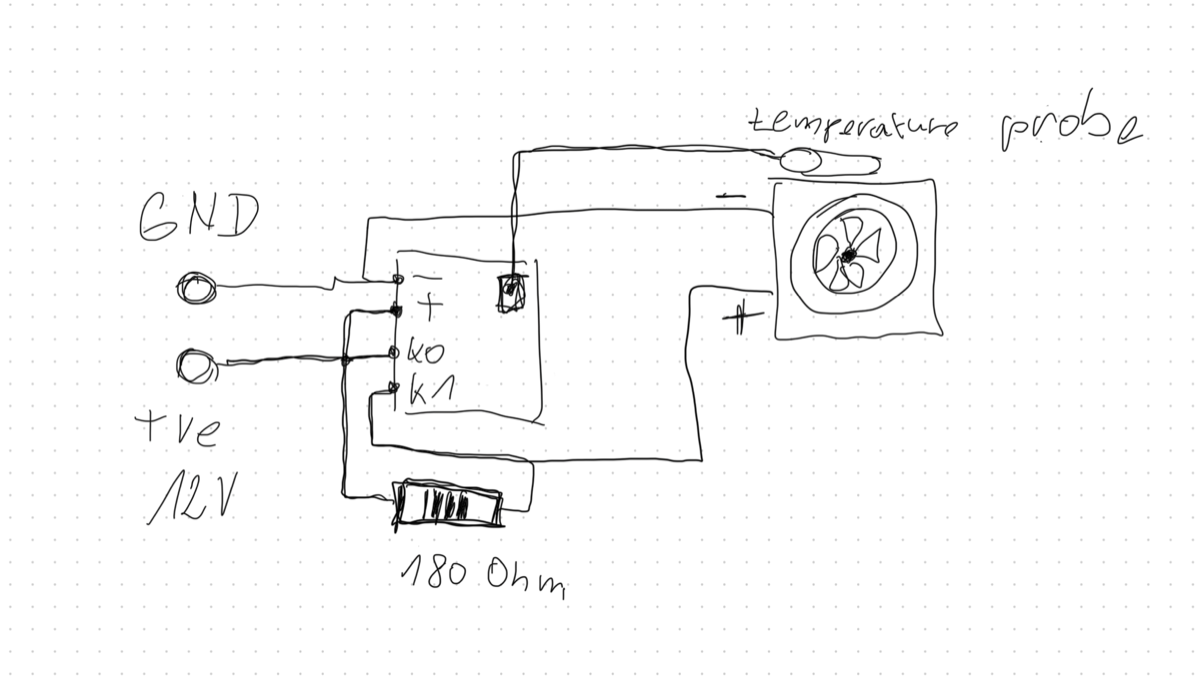 temperature probe
GND
−
−
+
+
K0
K1
+ve
12V
180 Ohm